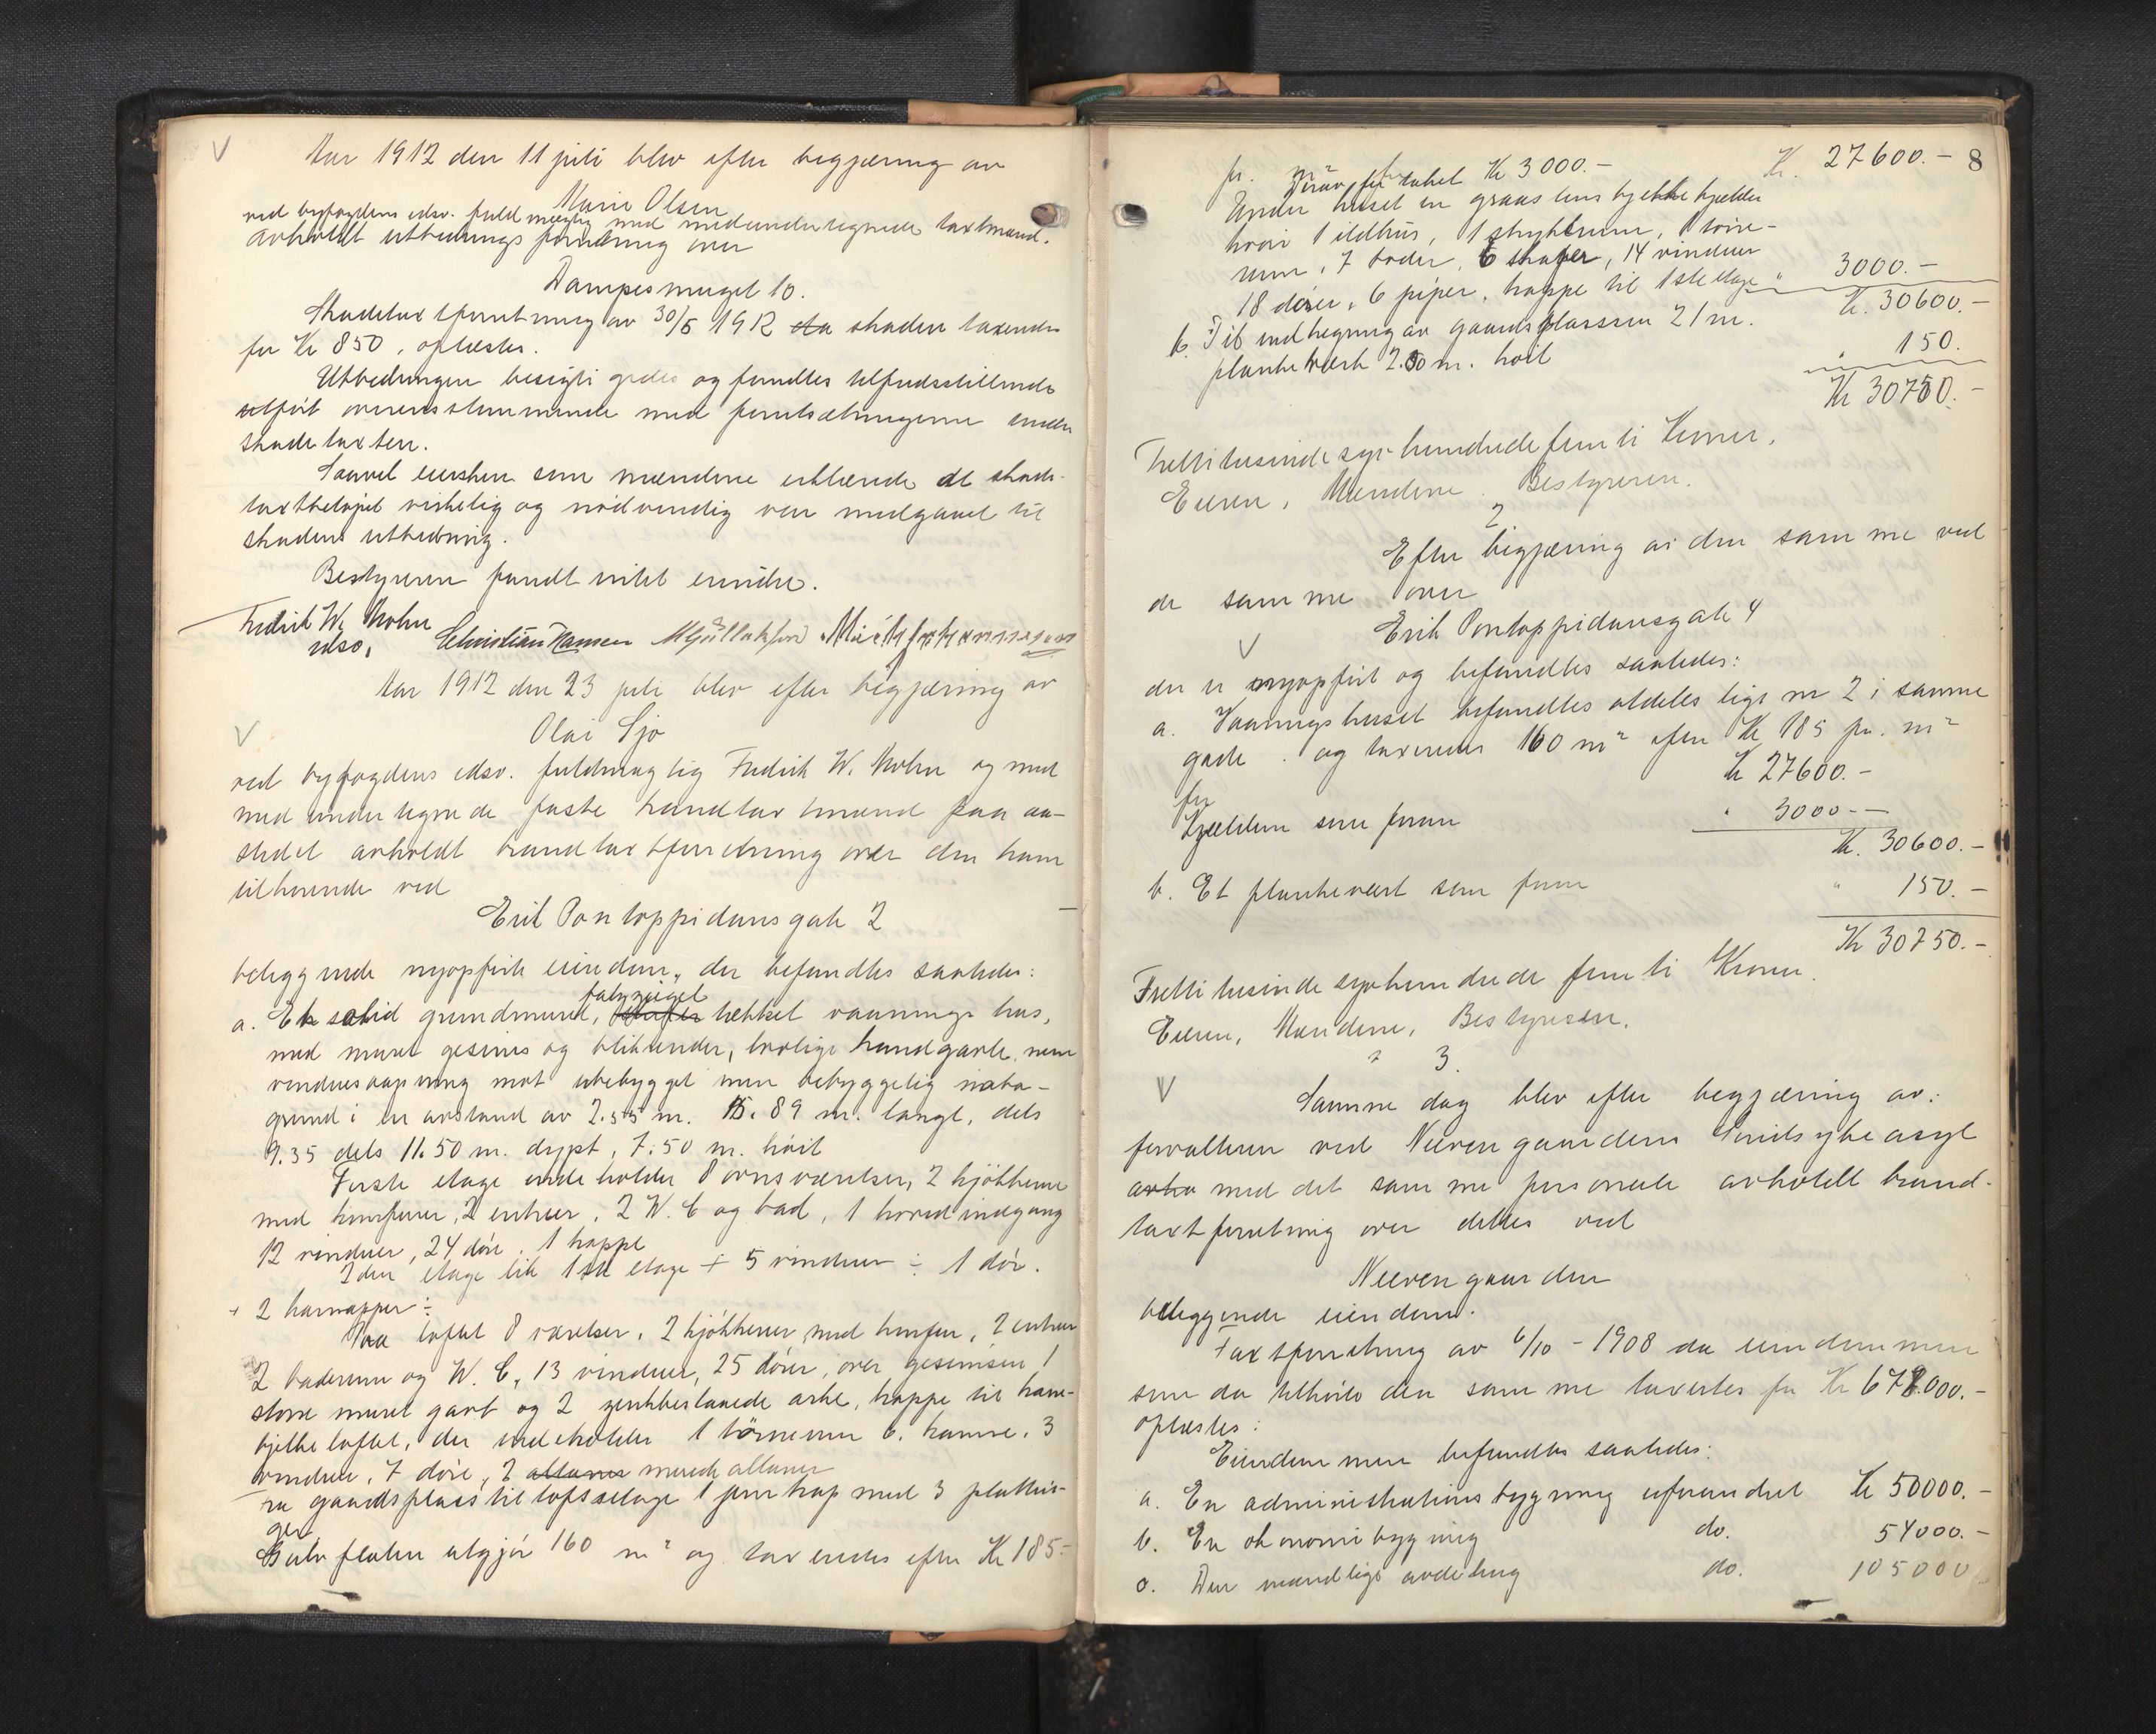 Aar 1912 den 11 juli blev efter begjæring av
Marie Olsen
ved byfogdens edsv. fuldmægtig med medundertegnede taxtmænd
avholdt utbedrings forretning over
Dampesmuget 10.
Skadetaxtforretning av 30/5 1912 da skaden taxerdes
for Kr 850, oplæstes.
Utbedringen besigtigedes og fandtes tilfredsstillende
utført overensstemmende med forutsætningerne under
skadetaxten.
Saavel eiersken som mændene erklærede at skade-
taxtbeløpet virkelig og nødvendig var medgaaet til
skadens utbedring.
Bestyreren fandt intet erindre.
Fredrik W. Mohn
edsv. Christian Hansen
Aar 1912 den 23 juli blev efter begjæring av
Olai Sjo
ved byfogdens edsv. fuldmægtig Fredrik W. Mohn og med
med undertegnede faste brandtaxtmænd paa aa-
stedet avholdt brandtaxtforretning over den ham
tilhørende ved
Erik Pontoppidansgate 2
beliggende nyopførte eiendom, der befandtes saaledes:
a. Et solid grundmuret, falsteglet tækket vaanings hus,
med muret gesims og blikrender, lovlige brandgavle, nem
vinduesaapning mot ubebygget men bebyggelig nabo-
grund i en avstand av 2.55 m. 15.89 m. langt, dels
9.35 dels 11.50 m. dypt, 7.50 m. høit
Første etage indeholder 8 ovnsværelser, 2 kjøkkener
med komfurer, 2 entreer, 2 W.C og bad, 1 hovedindgang
12 vinduer, 24 døre, 1 trappe
2den etage lik 1ste etage + 5 vinduer ÷ 1 dør.
+ 2 karnapper ÷
Paa loftet 8 værelser, 2 kjøkkener med komfur, 2 entreer
2 baderum og W.C, 13 vinduer, 25 dører, over gesimsen 1
større muret gavl og 2 zinkbeslaaede arke, trappe til hane-
bjelkeloftet, der indeholder 1 tørrerum 6. kamre, 3
vinduer, 7 døre, 2 altaner murede altaner
fra gaardsplass til loftsetage 1 jern trap med 3 plattin-
ger
Gulvflaten utgjør 160 m² og taxeredes efter Kr 185.-
8
pr. m² for Kr. 27600.-
Herav for taket Kr 3000.-
Under huset en graastens hjelke kjælder
hvori 1 ildhus, 1 strykerum, 1 tørre-
rum, 7 boder, 6 skaper, 14 vinduer
18 dører, 6 piper, trappe til 1ste etage " 3000.-
Kr. 30600.-
b. Til indhegning av gaardsplassen 21 m.
plankeværk 2.50 m. høit " 150.
Kr 30750.-
Trettitusinde syvhundrede femti Kroner.
Eieren, Mændene, Bestyreren.
2
Efter begjæring av den samme ved
de samme over
Erik Pontoppidansgate 4
der er nyopført og befandtes saaledes:
a. Vaaningshuset befandtes aldeles lige nr 2 i samme
gade og taxeredes 160 m² efter Kr 185 pr. m²
for Kr 27600.-
Kjælderen som foran " 3000.-
Kr. 30600.-
b. Et plankeværk som foran " 150.-
Kr 30750.-
Trettitusinde syvhundrede femti Kroner.
Eieren, Mændene, Bestyreren.
3.
Samme dag blev efter begjæring av:
forvalteren ved Neevengaardens Sindsykeasyl
avho med det samme personale avholdt brand-
taxtforretning over dettes ved
Neevengaarden
beliggende eiendom.
Taxtforretning av 6/10 - 1908 da eiendommen
som da tilhørte den samme taxertes for Kr 678.000.-
oplæstes:
Eiendommen befandtes saaledes:
a. En administrationsbygning uforandret Kr 50000.-
b. En økonomibygning do. 54000.-
c. Den mandlige avdeling do. 105000